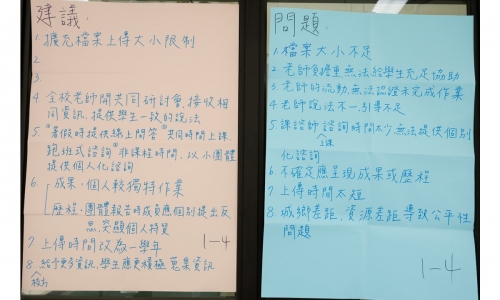 建議.
1. 擴充檔案上傳大小限制
2
3.
4 全校老師開共同研討會,接收相
同資訊,提供學生一致的說法
5. ①暑假時提供線上問答 ②共同時間上課
跑班式諮詢 ③非課程時間,以小團體
提供個人化諮詢
6. 成果:個人較獨特作業
歷程:團體報告時成員應個別提出反
思,突顯個人特質
7 上傳時間改為一學年
8 給予更多資訊,學生應更積極蒐集資訊
校方
1-4
問題.
1. 檔案大小不足
2 老師負擔重無法給學生充足協助
3 老師的流動,無法認證未完成作業
4 老師說法不一,引導不足
5 課諮師諮詢時間太少,無法提供個別
上課
化諮詢
6 不確定應呈現成果或歷程
7 上傳時間太短
8 城鄉差距,資源差距導致公平性
問題
1-4